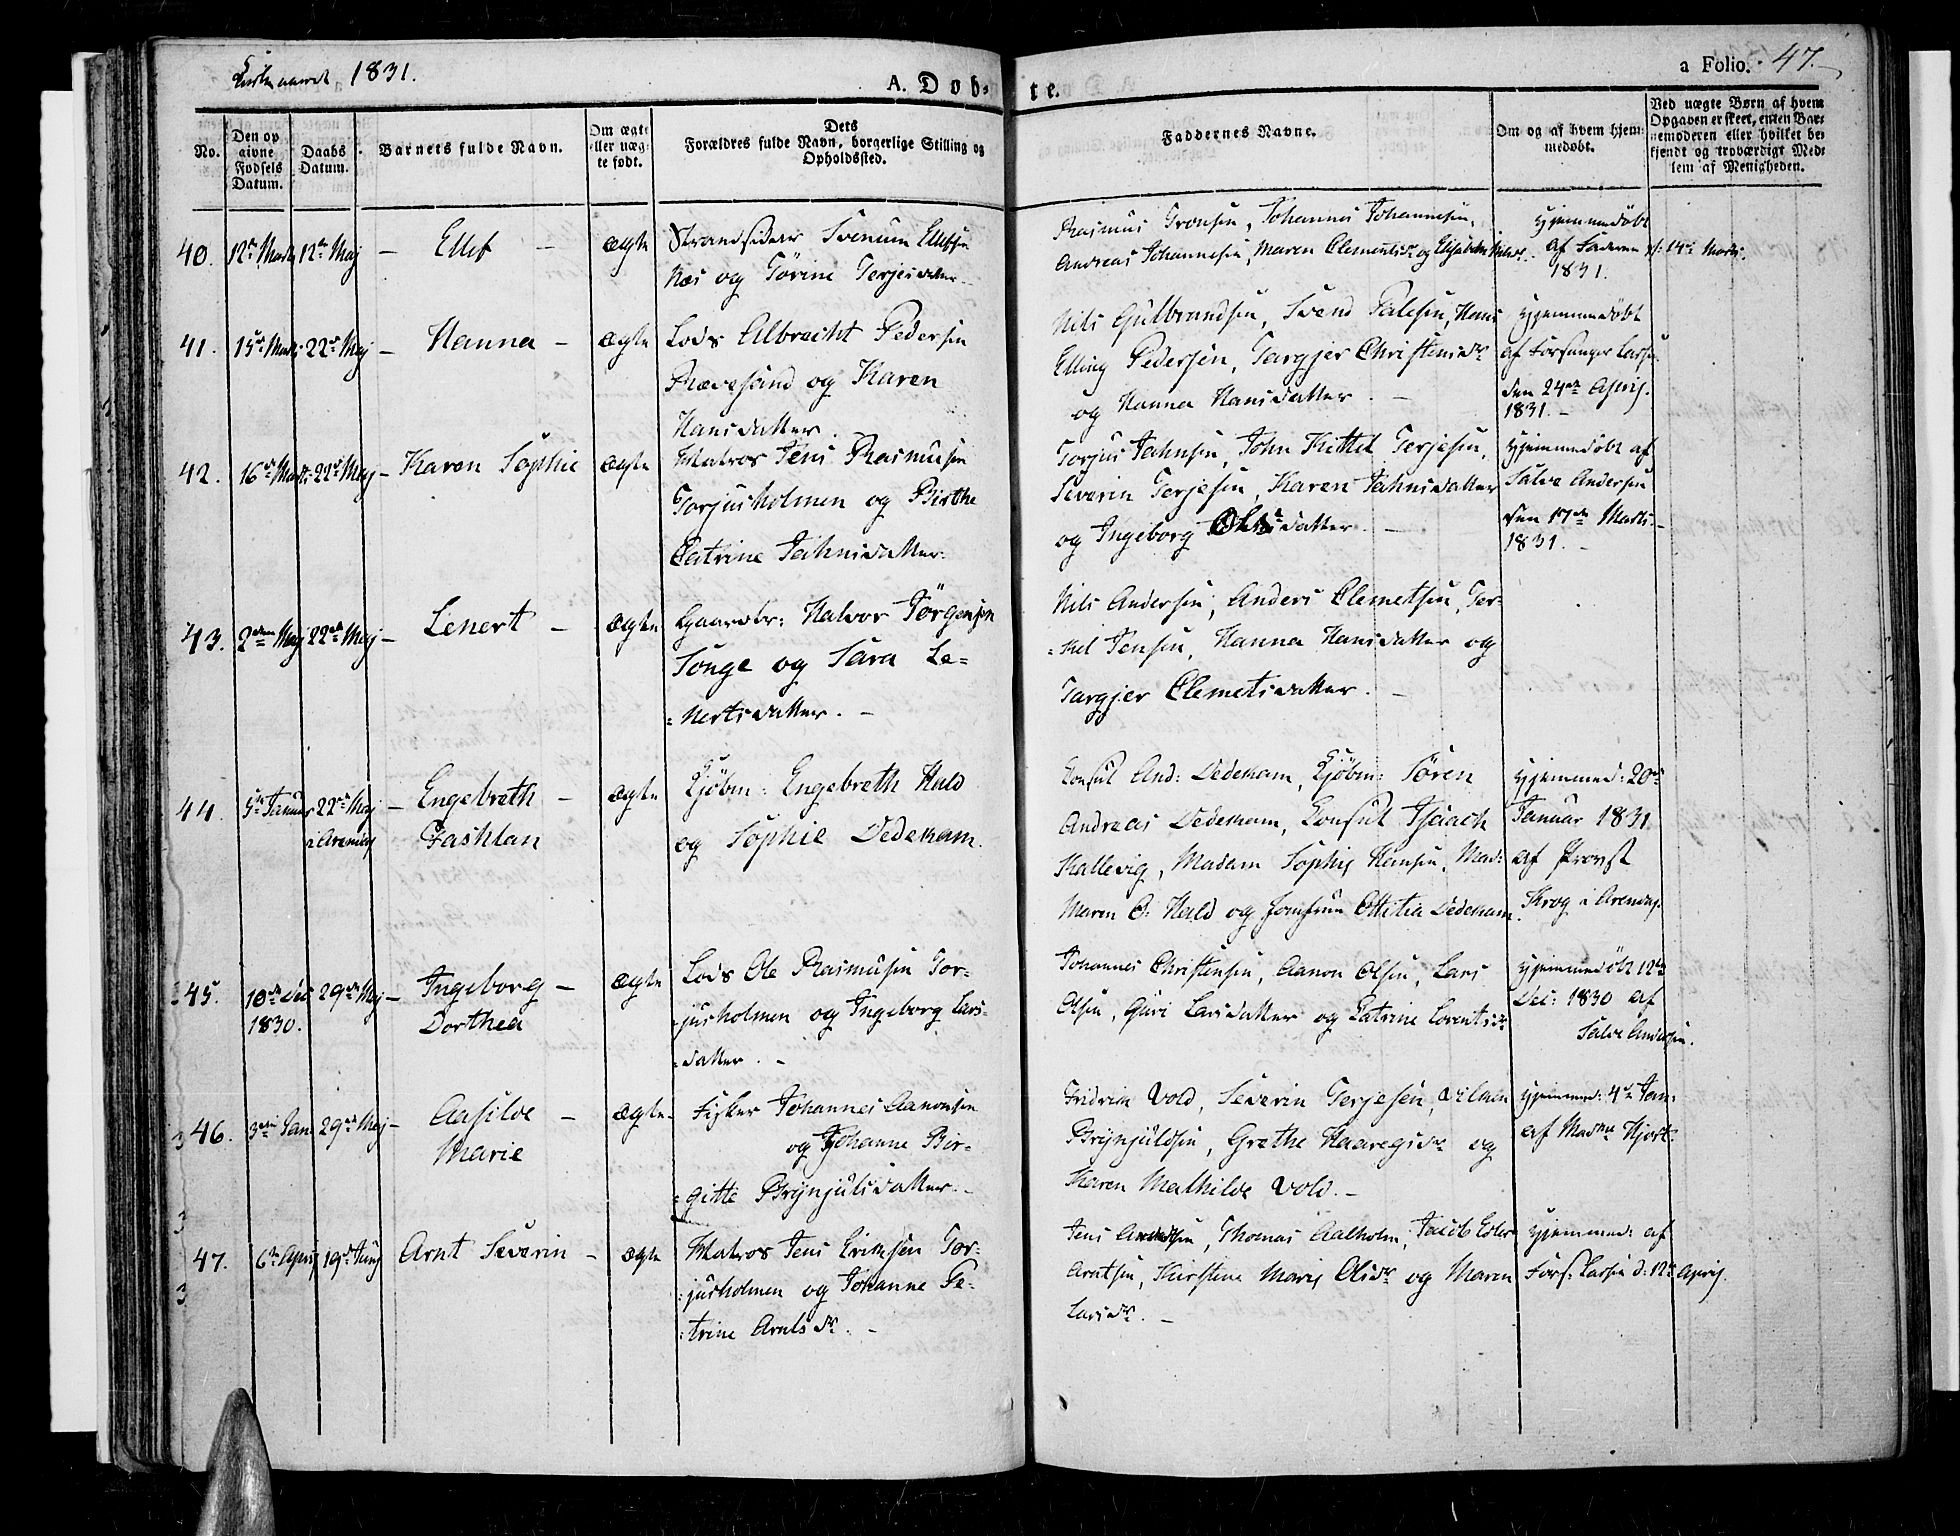 Kirkeaaret 1831.
A. Døb-
te.
a Folio. 47.
No.
Den op
givne
Fødsels
Datum.
Daabs
Datum.
Barnets fulde Navn.
Om ægte
eller uæg-
te født.
Dets
Forældres fulde Navn, borgerlige Stilling og
Opholdssted.
Faddernes Navne.
Om og af hvem hjem-
medøbt.
Ved uægte Børn af hvem
Opgaven er skeet, enten Bar-
nemoderen eller hvilket be-
kjendt og troværdigt Med-
lem af Menigheden.
40. 12te Marts 12te Maj — Ellef — ægte
Strandsidder Svenum Ellefsen
Næs og Tørine Terjesdatter.
Rasmus Tronsen, Johannes Johannesen,
Andreas Johannesen, Maren Clementsdr og Elisabeth
Hjemmedøbt
af Faderen d: 14de Marts.
1831.
41. 15de Marts 22de Maj — Hanna — ægte
Lods Albracht Pedersen
Rævesand og Karen
Hansdatter.
Nils Gulbrandsen, Svend Palesen, Hans
Elling Pedersen, Targjer Christensdr
og Hanna Hansdatter. —
Hjemmedøbt
af Forsanger Larsen
den 24de April.
1831. —
42. 16de Marts 22de Maj — Karen Sophie ægte
Matros Jens Rasmusen
Torjusholmen og Birthe
Catrine Jahnsdatter.
Torjus Jahnsen, John Kittel Terjesen,
Severin Terjesen, Karen Jahnsdatter
og Ingeborg Olsdatter. —
Hjemmedøbt af
Salve Andersen
den 17de Marts.
1831. —
43. 2den Maj 22de Maj — Lenert — ægte
Gaardbr: Halvor Jörgensen
Songe og Sara Le=
=nertsdatter. —
Nils Andersen, Anders Clemetsen, Ter=
=kel Jensen, Hanna Hansdatter og
Targjer Clemetsdatter. —
44. 5te Januar 22de Maj — Engebreth — ægte
i Arendal Fashlan
Kjøbm: Engebreth Hald
og Sophie Dedekam.
Consul And: Dedekam, Kjøbm: Søren
Andreas Dedekam, Consul Isaach
Kallevig, Madam Sophie Hansen, Mad:
Maren O: Hald og Jomfrue Ottitia Dedekam.
Hjemmed: 20de
Januar 1831
af Provst
Krog i Arendal.
45. 10de Dec 29de Maj — Ingeborg — ægte
1830. Dorthea
Lods Ole Rasmusen Tor=
=jusholmen og Ingeborg Lars=
=datter. —
Johannes Christensen, Aanon Olsen, Lars
Olsen, Guri Larsdatter og Catrine Lorentsdr
Hjemmedøbt 12te
Dec: 1830 af
Salve Andersen.
46. 3die Jan: 29de Maj — Aasilde — ægte.
Marie
Fisker Johannes Aanonsen
og Johanne Bir=
=gitte Brynjulsdatter. —
Fridrik Vold, Severin Terjesen, Vilhen
Brynjulsen, Grethe Haaregsdr og
Karen Mathilde Vold. —
Hjemmed: 4de Jan:
af Madme Hjort.
47. 6te April 19de Juny Arnt Severin — ægte
Matros Jens Eriksen Tor=
=jusholmen og Johanne Pe=
=trine Arntsdr. —
Jens , Thomas Aalholm, Jacob Eder
Arntsen, Kirstene Marie Olsdr og Maren
Larsdr. —
Hjemmed: af
Fors: Larsen d: 12te April.